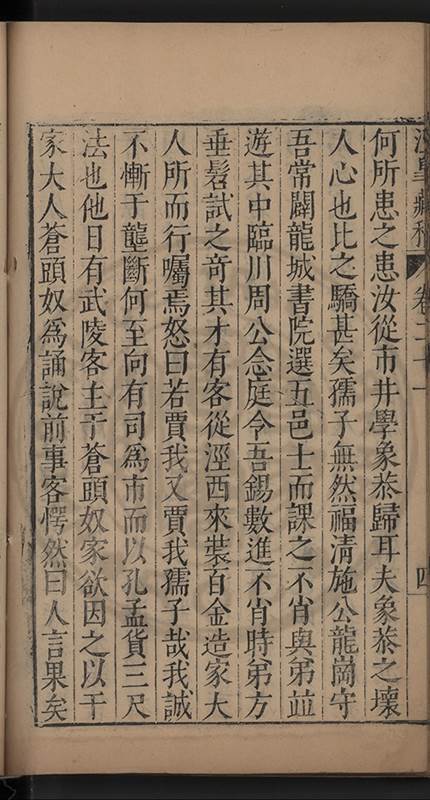 涇皋藏稿 卷二十一 四
何所患之患汝從市井學象恭歸耳夫象恭之壞
人心也比之驕甚矣孺子無然福清施公龍崗守
吾常闢龍城書院選五邑士而課之不肖與弟並
遊其中臨川周公念庭令吾錫數進不肖時弟方
垂髫試之奇其才有客從涇西來裝百金造家大
人所而行囑焉怒曰若賈我又賈我孺子哉我誠
不慚于龍斷何至向有司為市而以孔孟貨三尺
法也他日有武陵客主于蒼頭奴家欲因之以干
家大人蒼頭奴為誦說前事客愕然曰人言果矣